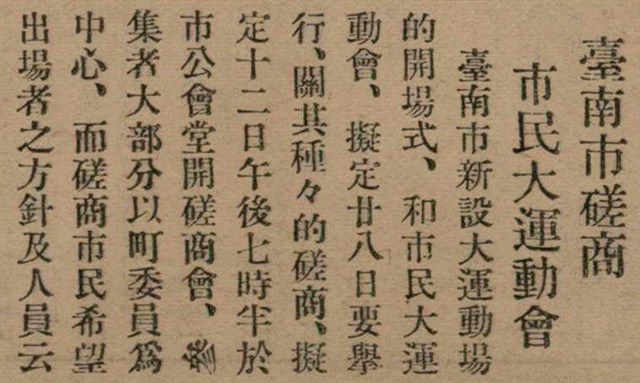 臺南市磋商
市民大運動會
臺南市新設大運動場
的開場式、和市民大運
動會、擬定廿八日要舉
行、關其種々的磋商、擬
定十二日午後七時半於
市公會堂開磋商會、
集者大部分以町委員爲
中心、而磋商市民希望
出場者之方針及人員云